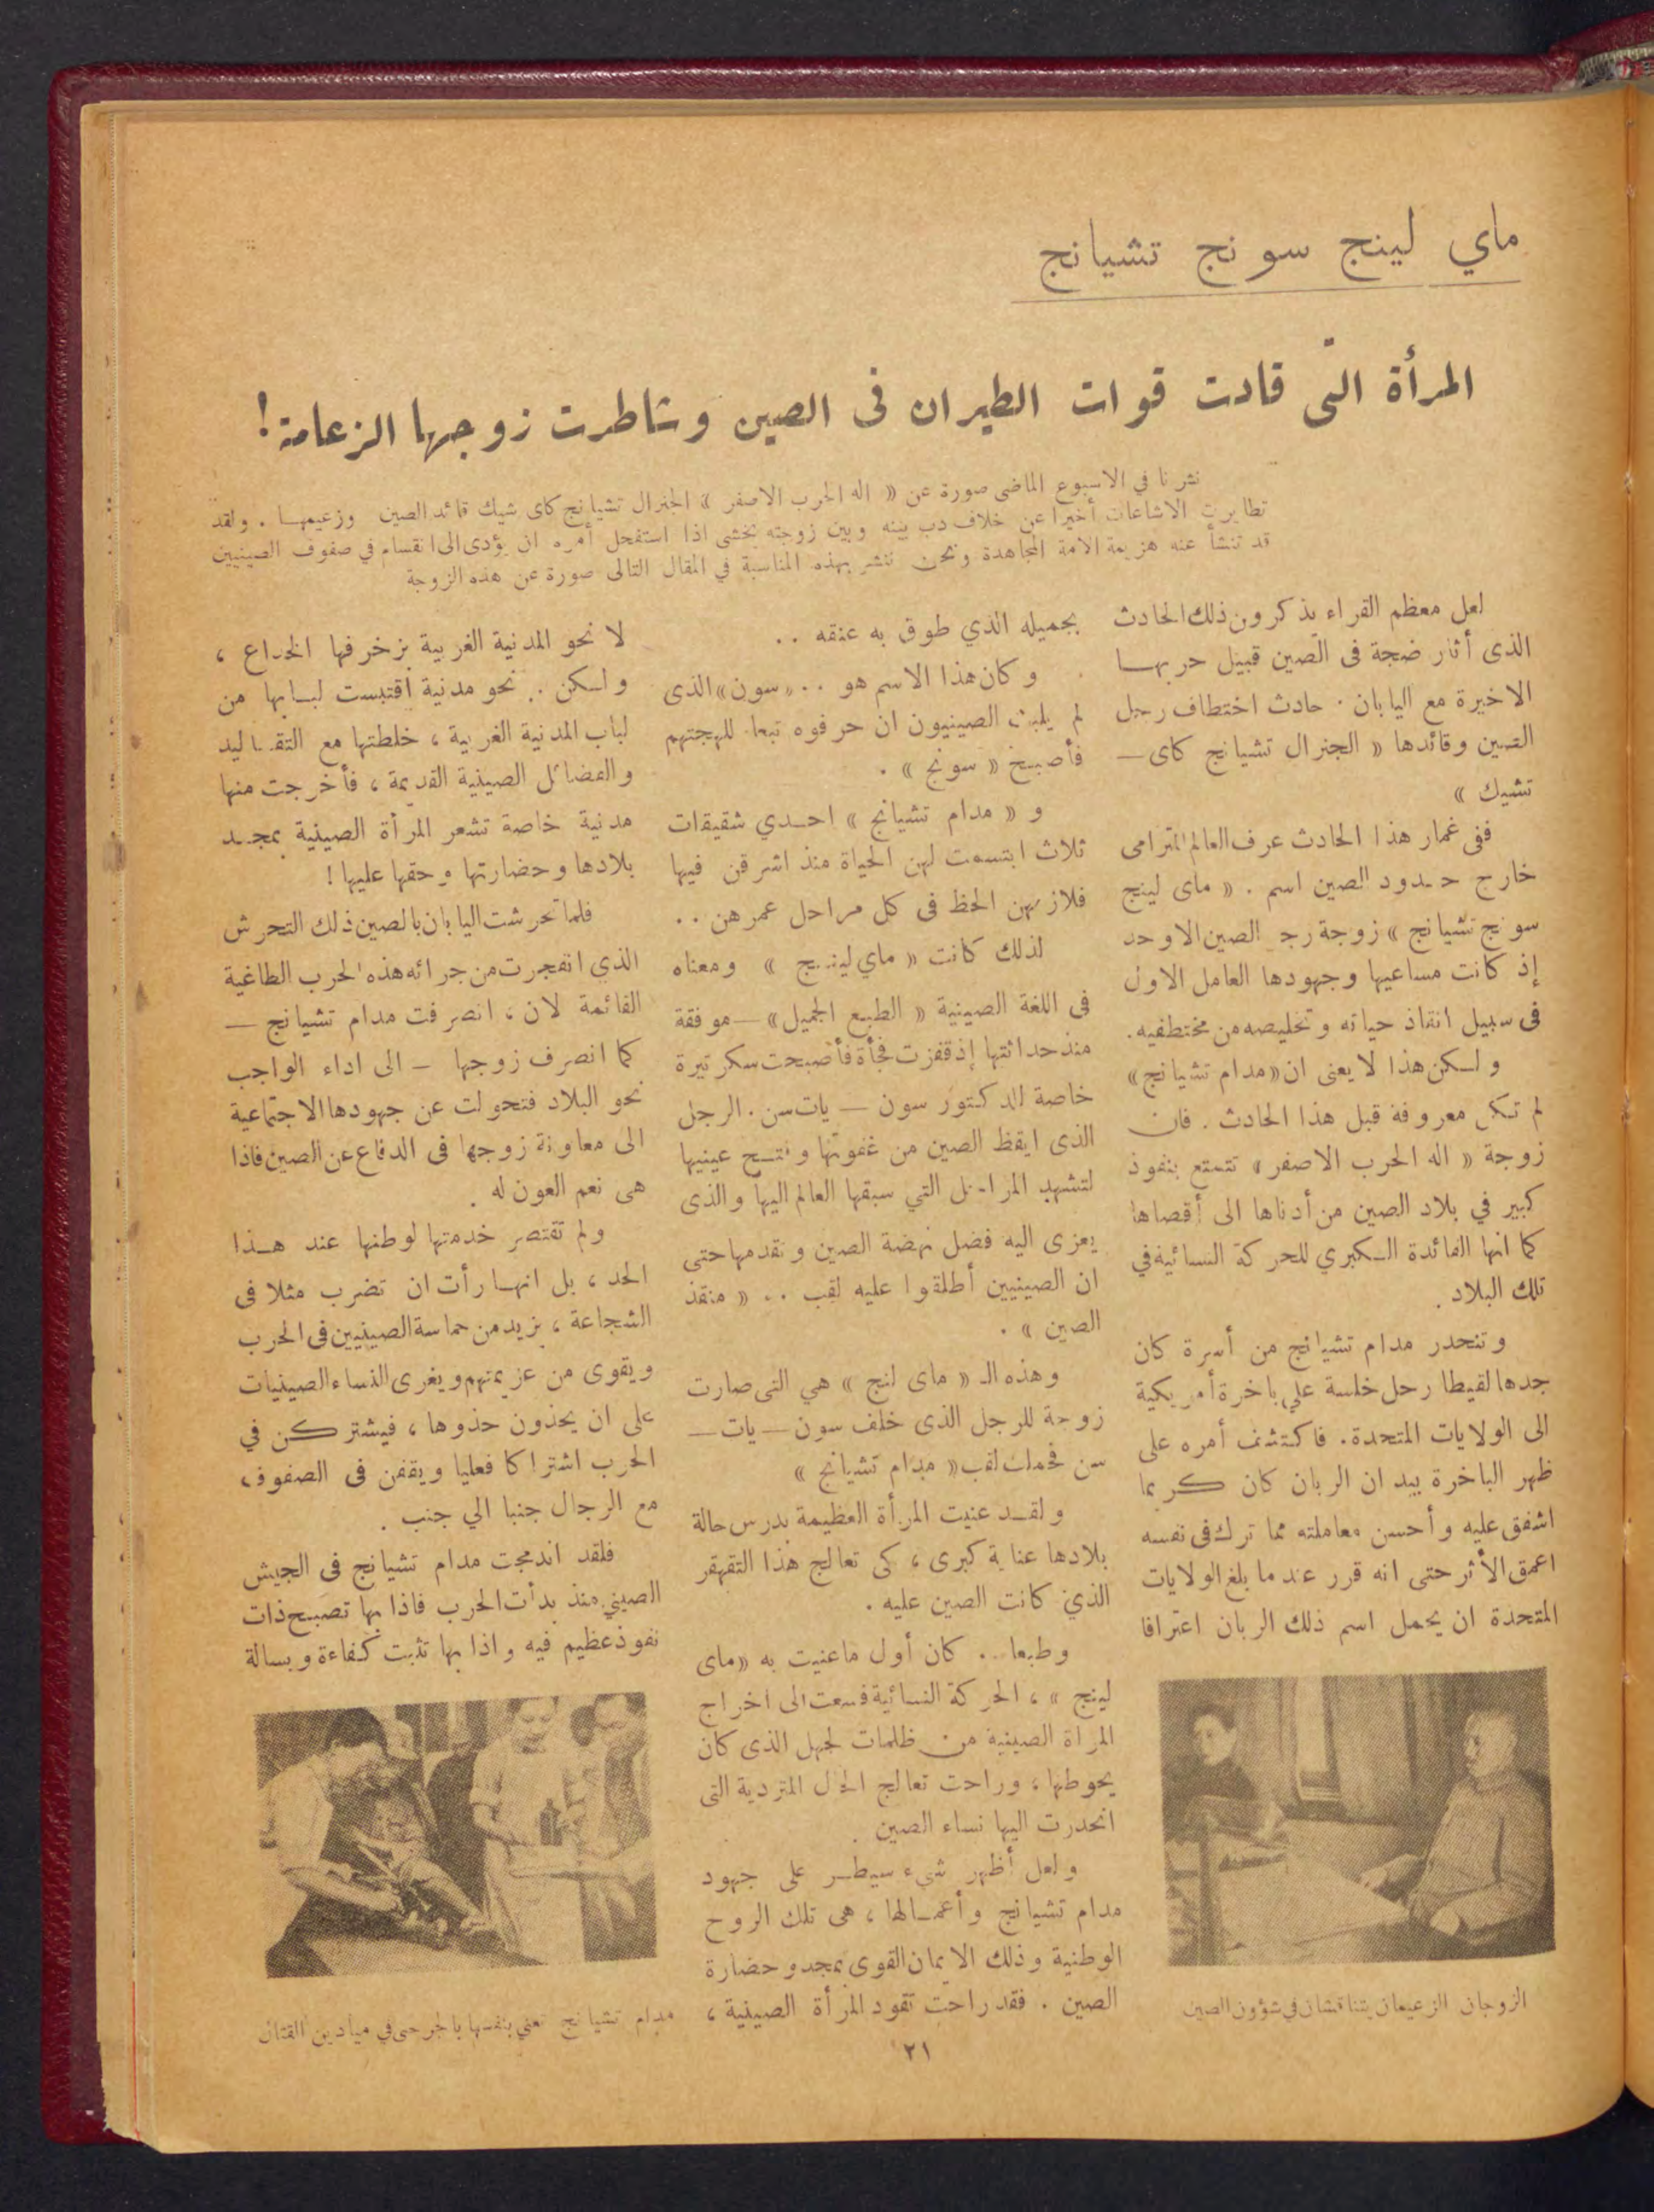 ماي لينج سونج تشيانج
المرأة التى قادت قوات الطيران فى الصين وشاطرت زوجها الزعامة !
نشرنا في الاسبوع الماضى صورة عن « اله الحرب الاصفر » الجنرال تشيانج كاى شيك قائد الصين وزعيمها . ولقد
تطايرت الاشاعات أخيرا عن خلاف دب بينه وبين زوجته يخشى اذا استفحل أمره ان يؤدى الى انقسام في صفوف الصينيين
قد تنشأ عنه هزيمة الامة المجاهدة ونحن ننشر بهذه المناسبة في المقال التالى صورة عن هذه الزوجة
لعل معظم القراء يذكرون ذلك الحادث
الذى أثار ضجة فى الصين قبيل حربها
الاخيرة مع اليابان . حادث اختطاف رجل
الصين وقائدها « الجنرال تشيانج كاى —
تشيك »
ففى غمار هذا الحادث عرف العالم المترامى
خارج حدود الصين اسم . « ماى لينج
سونج تشيانج » زوجة رجل الصين الاوحد
إذ كانت مساعيها وجهودها العامل الاول
فى سبيل انقاذ حياته وتخليصه من مختطفيه.
ولكن هذا لا يعنى ان « مدام تشيانج »
لم تكن معروفة قبل هذا الحادث . فان
زوجة « اله الحرب الاصفر » تتمتع بنفوذ
كبير في بلاد الصين من أدناها الى أقصاها
كما انها القائدة الكبري للحركة النسائية في
تلك البلاد .
وتنحدر مدام تشيانج من أسرة كان
جدها لقيطا رحل خلسة علي باخرة أمريكية
الى الولايات المتحدة. فاكتشف أمره على
ظهر الباخرة بيد ان الربان كان كريما
اشفق عليه وأحسن معاملته مما ترك فى نفسه
اعمق الأثر حتى انه قرر عند ما بلغ الولايات
المتحدة ان يحمل اسم ذلك الربان اعترافا
الزوجان الزعيمان يتناقشان في شؤون الصين
بجميله الذي طوق به عنقه . .
وكان هذا الاسم هو . . « سون » الذى
لم يلبث الصينيون ان حرفوه تبعا للهجتهم
فأصبح « سونج » .
و « مدام تشيانج » احدي شقيقات
ثلاث ابتسمت لهن الحياة منذ اشرقن فيها
فلازمهن الحظ فى كل مراحل عمرهن . .
لذلك كانت « ماي لينج » ومعناه
فى اللغة الصينية « الطبع الجميل » — موفقة
منذ حداثتها إذ قفزت فجأة فأصبحت سكرتيرة
خاصة للدكتور سون — يات سن . الرجل
الذى ايقظ الصين من غفوتها وفتح عينيها
لتشهد المراحل التي سبقها العالم اليها والذى
يعزى اليه فضل نهضة الصين وتقدمها حتى
ان الصينيين أطلقوا عليه لقب . . « منقذ
الصين » .
وهذه الـ « ماى لنج » هي التى صارت
زوجة للرجل الذى خلف سون — يات —
سن فحملت لقب « مدام تشيانج »
ولقد عنيت المرأة العظيمة بدرس حالة
بلادها عناية كبرى ، كى تعالج هذا التقهقر
الذي كانت الصين عليه .
وطبعا .. كان أول ماعنيت به « ماى
لينج » ، الحركة النسائية فسعت الى اخراج
المراة الصينية من ظلمات لجهل الذى كان
يحوطها ، وراحت تعالج الحال المتردية التى
انحدرت اليها نساء الصين .
ولعل أظهر شىء سيطر على جهود
مدام تشيانج وأعمالها ، هى تلك الروح
الوطنية وذلك الايمان القوى بمجد وحضارة
الصين . فقد راحت تقود المرأة الصينية ،
لا نحو المدنية الغربية بزخرفها الخداع ،
ولكن . نحو مدنية اقتبست لبابها من
لباب المدنية الغربية ، خلطتها مع التقاليد
والفضائل الصينية القديمة ، فأخرجت منها
مدنية خاصة تشعر المرأة الصينية بمجد
بلادها وحضارتها وحقها عليها !
فلما تحرشت اليابان بالصين ذلك التحرش
الذي انفجرت من جرائه هذه الحرب الطاغية
القائمة لان ، انصرفت مدام تشيانج —
كما انصرف زوجها — الى اداء الواجب
نحو البلاد فتحولت عن جهودها الاجتماعية
الى معاونة زوجها فى الدفاع عن الصين فاذا
هى نعم العون له .
ولم تقتصر خدمتها لوطنها عند هذا
الحد ، بل انها رأت ان تضرب مثلا فى
الشجاعة ، يزيد من حماسة الصينيين فى الحرب
ويقوى من عزيمتهم ويغرى النساء الصينيات
على ان يحذون حذوها ، فيشتركن في
الحرب اشتراكا فعليا ويقفن فى الصفوف
مع الرجال جنبا الي جنب .
فلقد اندمجت مدام تشيانج فى الجيش
الصيني منذ بدأت الحرب فاذا بها تصبح ذات
نفوذ عظيم فيه واذا بها تثبت كفاءة وبسالة
مدام تشيانج تعني بنفسها بالجرحى في ميادين القتال
٢١